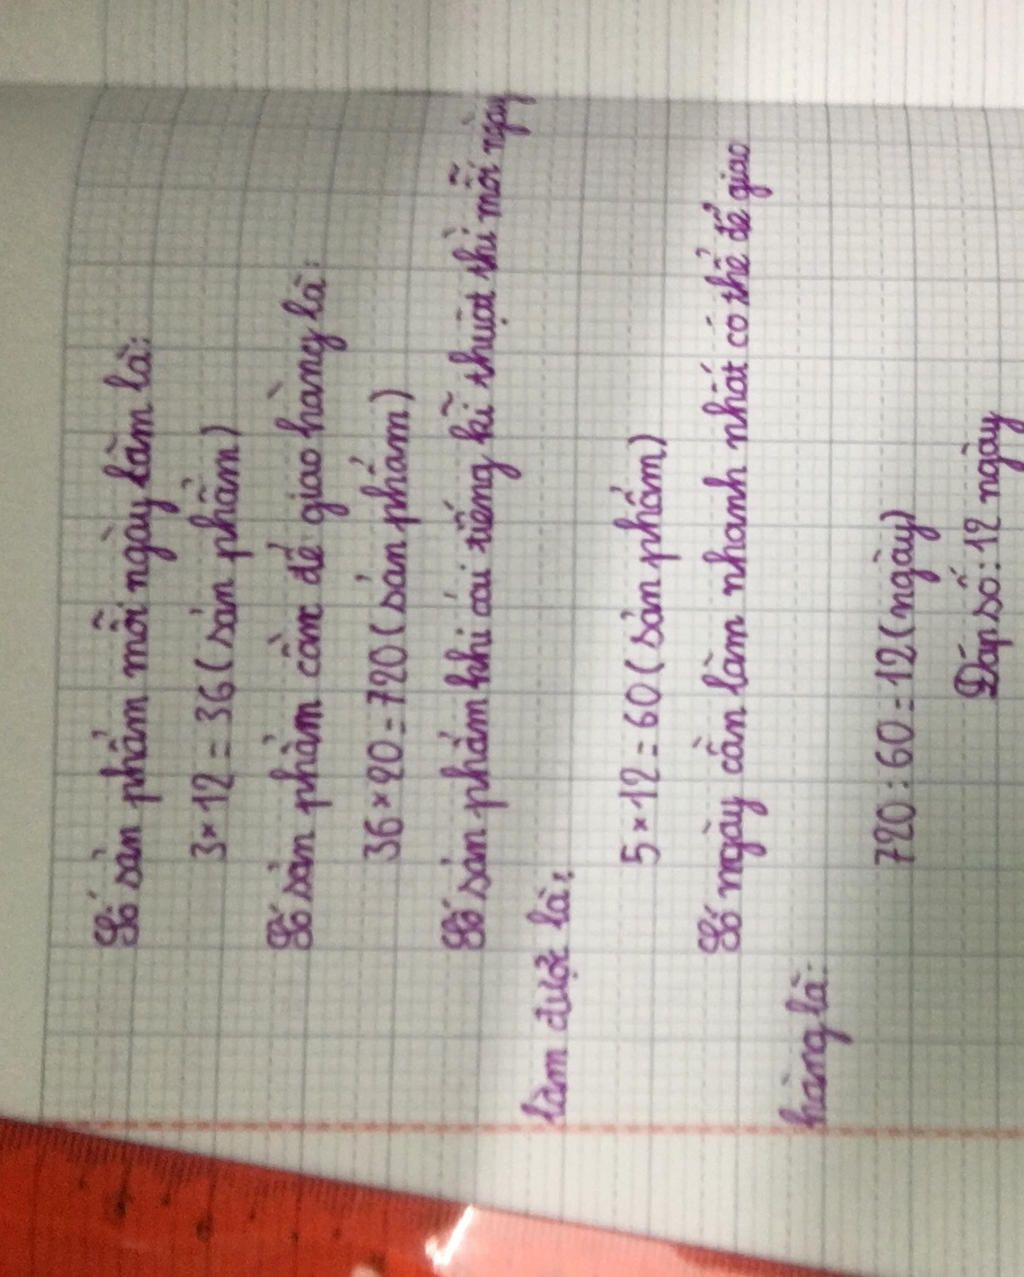 Số sản phẩm mỗi ngày làm là:
3 × 12 = 36 (sản phẩm)
Số sản phẩm cần để giao hàng là:
36 × 20 = 720 (sản phẩm)
Số sản phẩm khi cải tiếng kĩ thuật thì mỗi ngày
làm được là:
5 × 12 = 60 (sản phẩm)
Số ngày cần làm nhanh nhất có thể để giao
hàng là:
720 : 60 = 12 (ngày)
Đáp số: 12 ngày